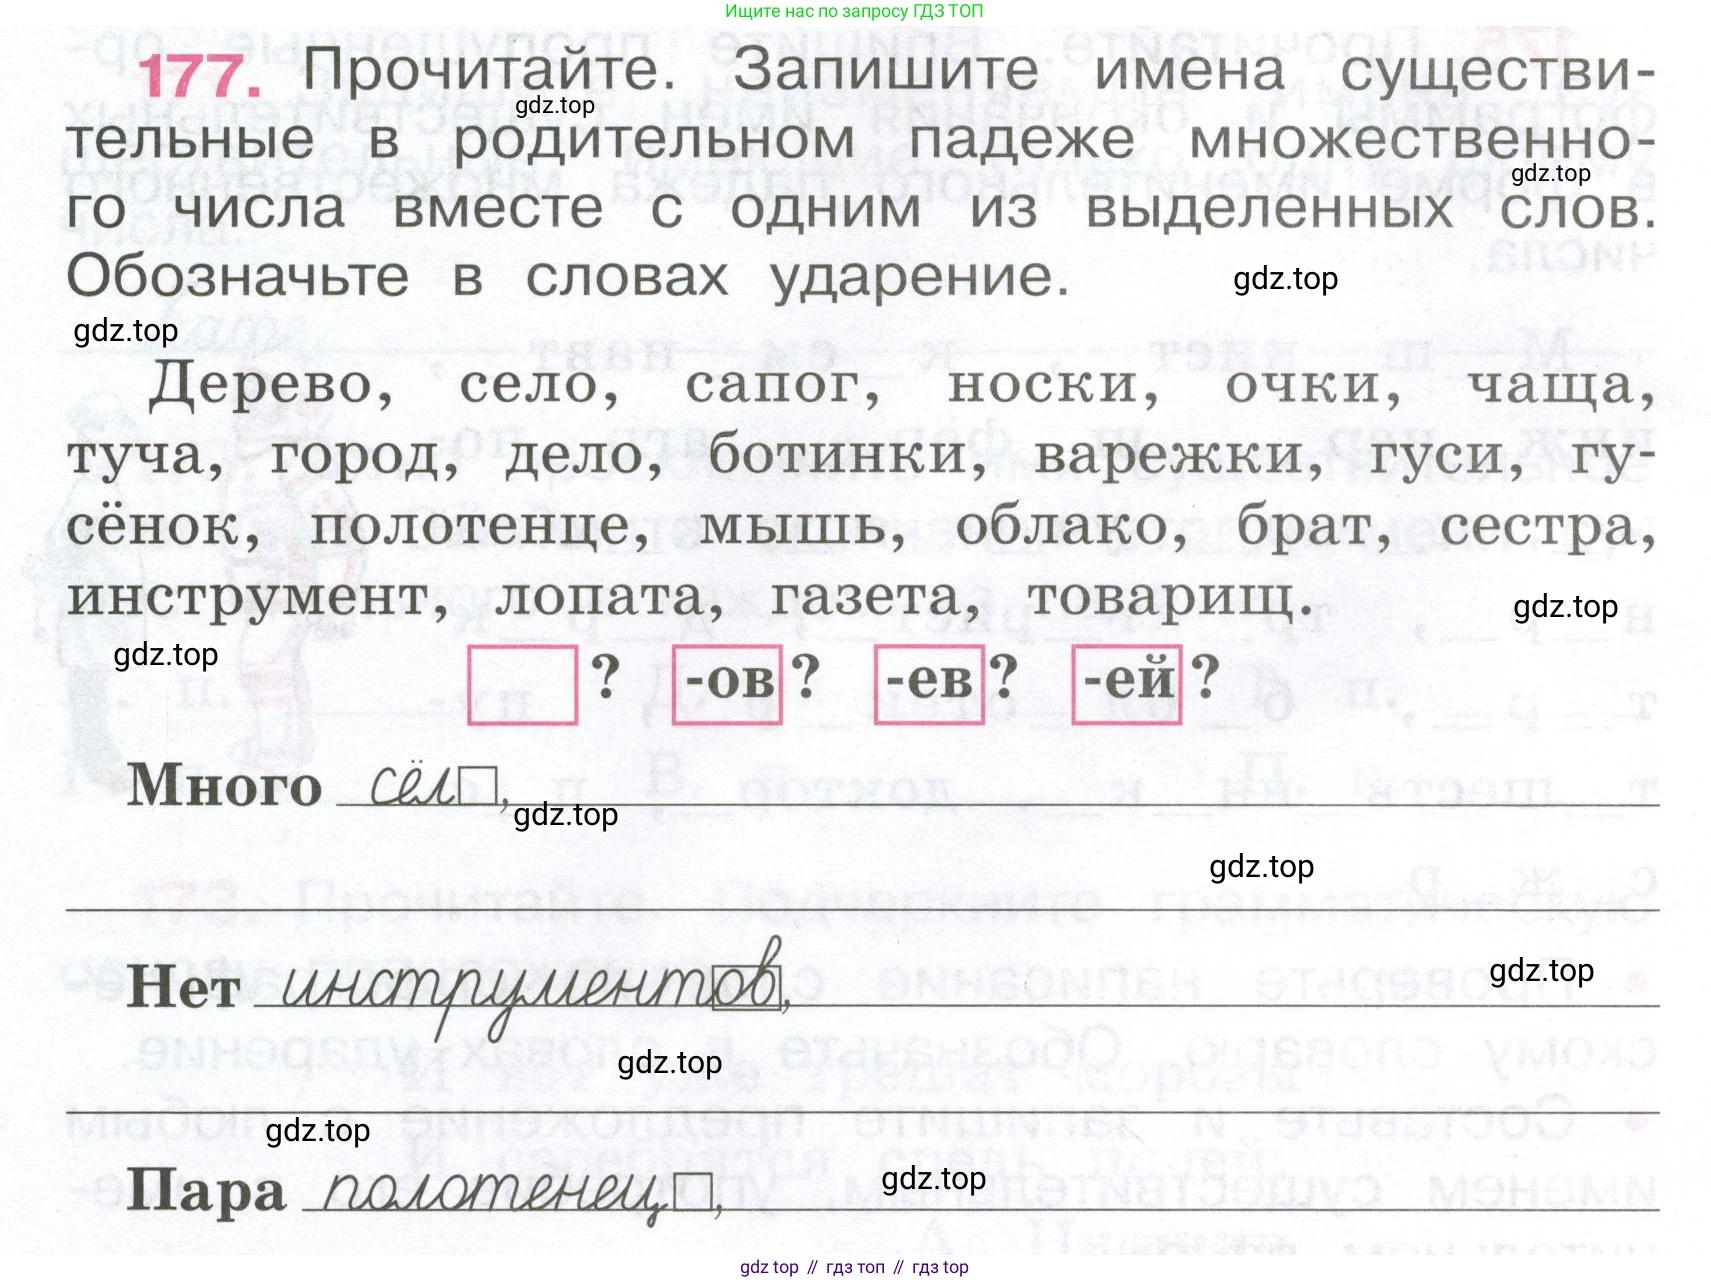 Ищите нас по запросу ГДЗ ТОП
177. Прочитайте. Запишите имена существи-
gdz.top
тельные в родительном падеже множественно-
gdz.top
го числа вместе с одним из выделенных слов.
Обозначьте в словах ударение.
gdz.top
gdz.top
Дерево, село, сапог, носки, очки, чаща,
туча, город, дело, ботинки, варежки, гуси, гу-
сёнок, полотенце, мышь, облако, брат, сестра,
инструмент, лопата, газета, товарищ.
gdz.top
gdz.top
? -ов ? -ев ? -ей ?
Много сёл,
gdz.top
gdz.top
Нет инструментов,
gdz.top
gdz.top
gdz.top
Пара полотенец,
gdz.top
gdz top // гдз топ // гдз top